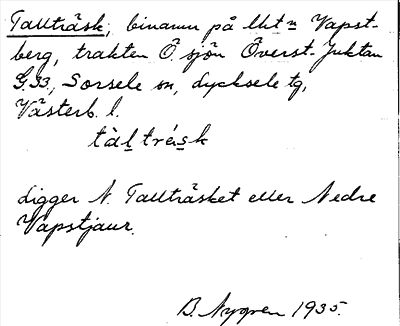 Tallträsk, binamn på lht n Vapst-
berg, trakten Ö. sjön Överst-Juktan
G.33, Sorsele sn, Lycksele tg,
Västerb. l.
tàl trǻsk
ligger N. Tallträsket eller Nedre
Vapstjaur.
B. Nygren 1935.